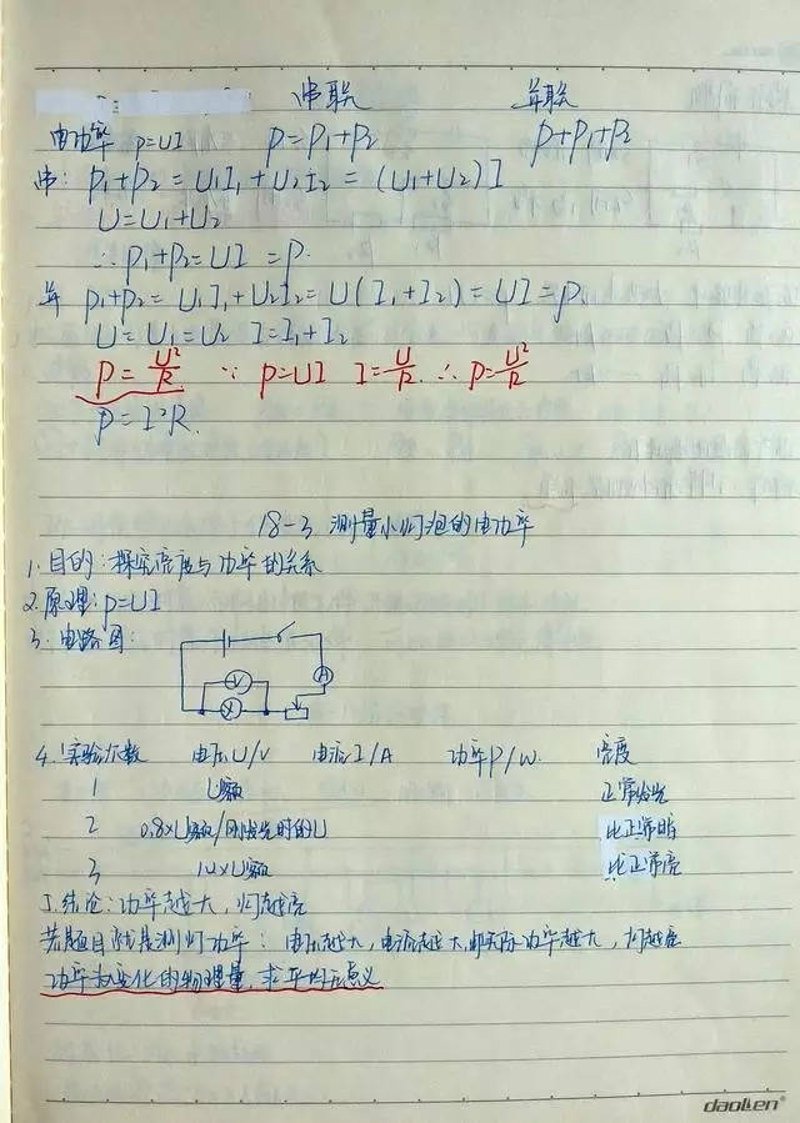 串联 并联
电功率 P=UI P=P₁+P₂ P+P₁+P₂
串: P₁+P₂=U₁I₁+U₂I₂=(U₁+U₂)I
U=U₁+U₂
∴P₁+P₂=UI=P.
并 P₁+P₂=U₁I₁+U₂I₂=U(I₁+I₂)=UI=P.
U=U₁=U₂ I=I₁+I₂
P=U²/R ∵ P=UI I=U/R. ∴P=U²/R
P=I²R.
18-3 测量小灯泡的电功率
1.目的:探究亮度与功率的关系
2.原理:P=UI
3.电路图:
A
V
4.实验次数 电压U/V 电流I/A 功率P/W. 亮度
1 U额 正常发光
2 0.8×U额/刚发光时的U 比正常暗
3 1.2×U额 比正常亮
5.结论:功率越大,灯越亮
若题目就是测灯功率: 电压越大,电流越大,即实际功率越大,灯越亮
功率为变化的物理量,求平均无意义
daolien